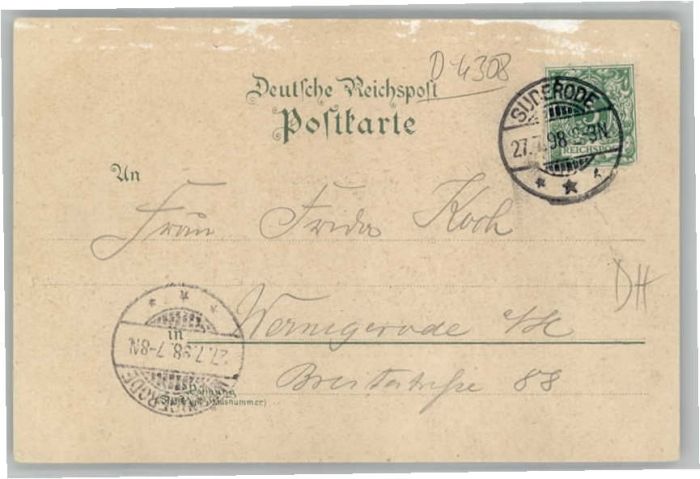 D-4308
Deutsche Reichspost
Postkarte
SUDERODE
27.7.98 8-9N
REICHSPOST
An
Frau Frida Koch
DH
Wernigerode a/H
in
WERNIGERODE
27.7.98.7-8N
Breitestraße 88
Wohnung
(Straße und Hausnummer)